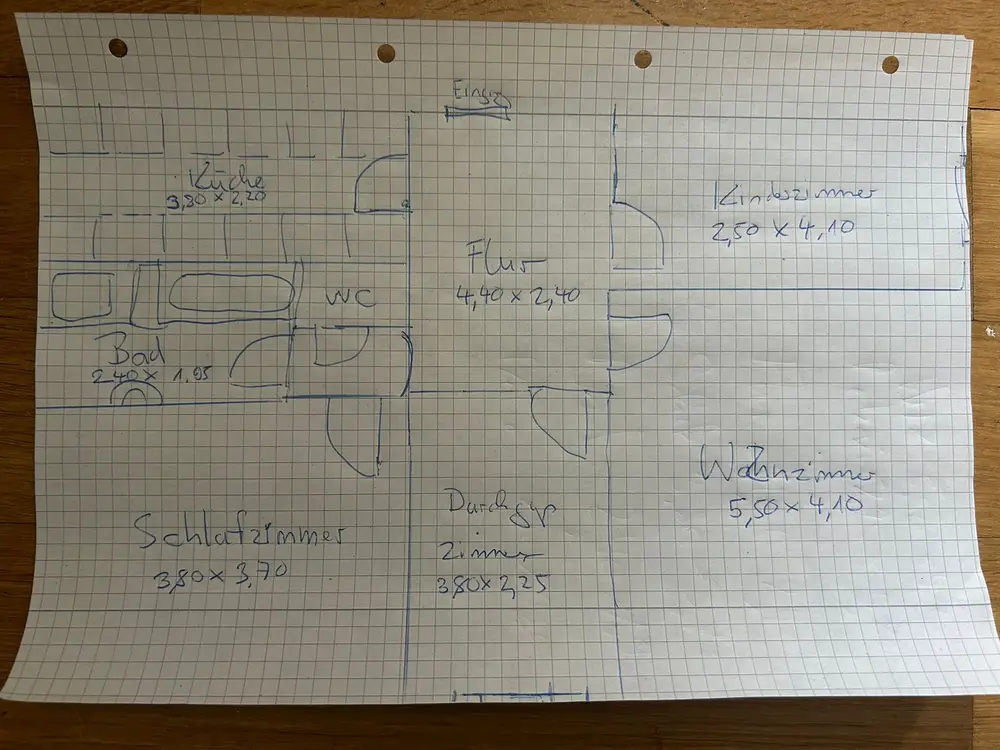 Eingang
Küche
3,30 x 2,20
Kinderzimmer
2,50 x 4,10
Flur
4,40 x 2,40
WC
Bad
2,40 x 1,95
Wohnzimmer
5,50 x 4,10
Durchgang
Zimmer
3,80 x 2,25
Schlafzimmer
3,80 x 3,70